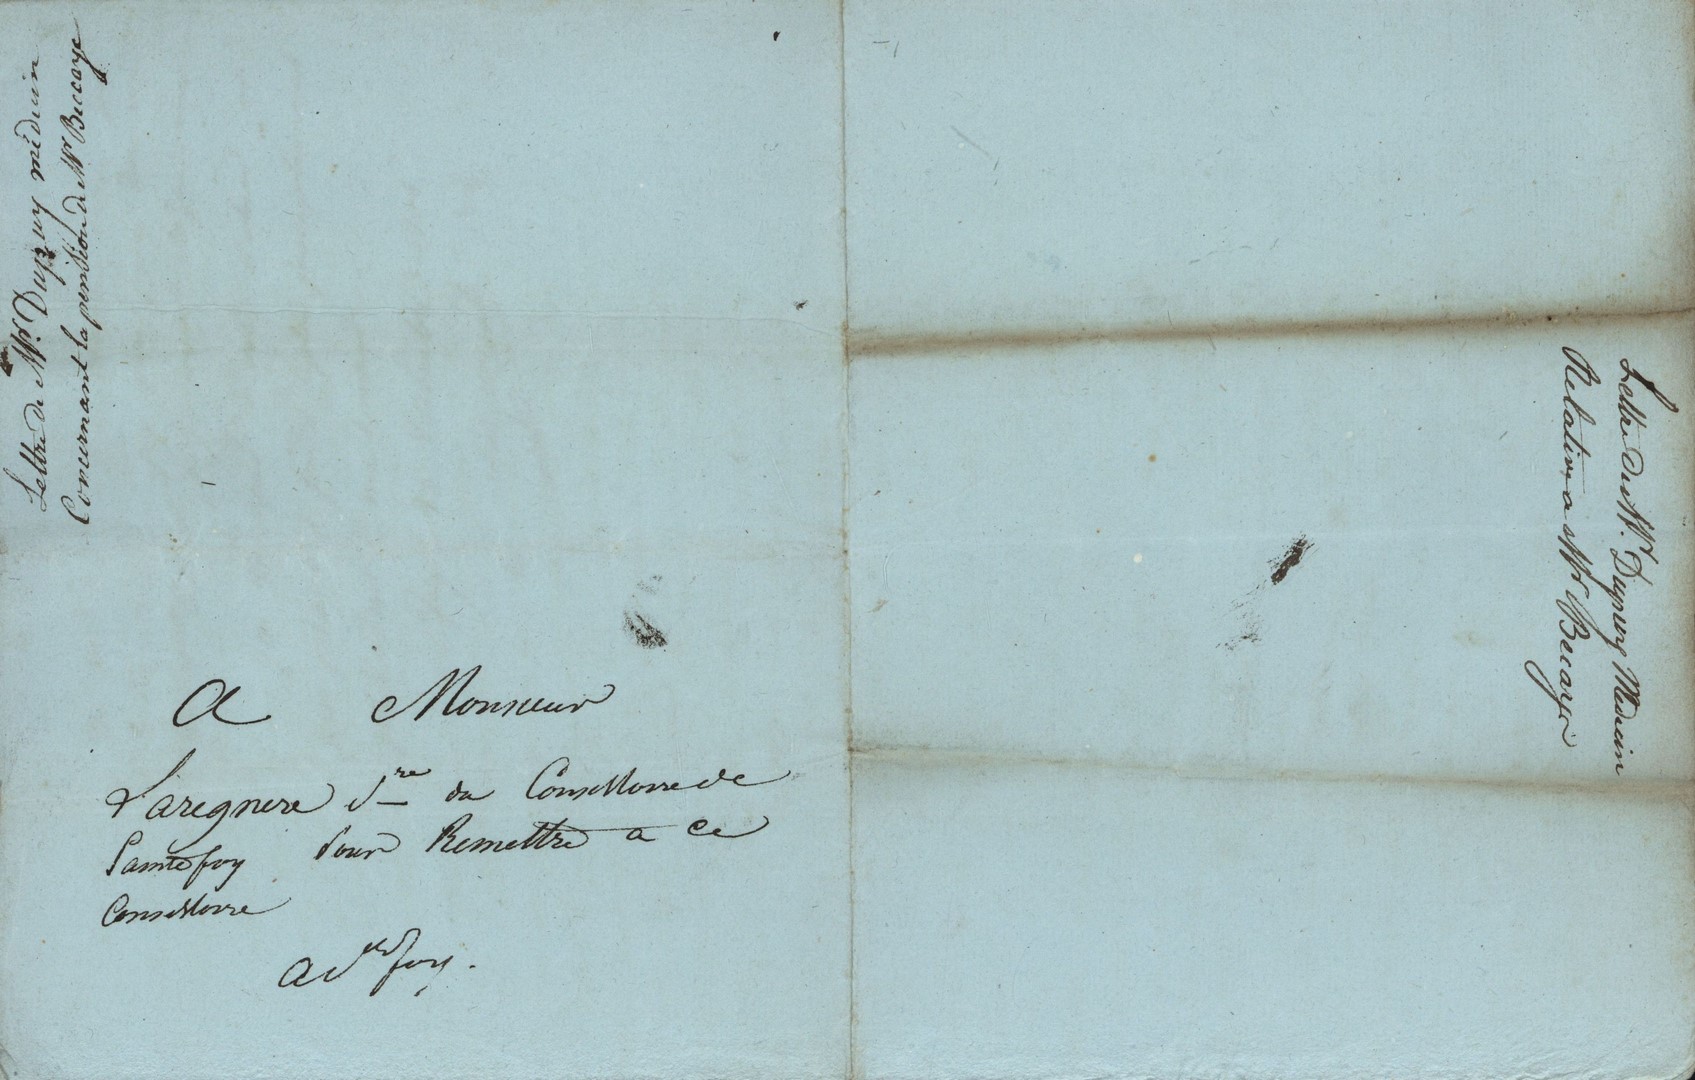 Lettre de Mr. Dupuy médecin
Concernant la pension de Mr Beccaye
A Monsieur
Laregnere Sre du Consistoire de
Sainte foy pour Remettre a ce
Consistoire
A Ste foy.
Lettre de Mr. Dupuy Medecin
Relative a Mr Beccaye